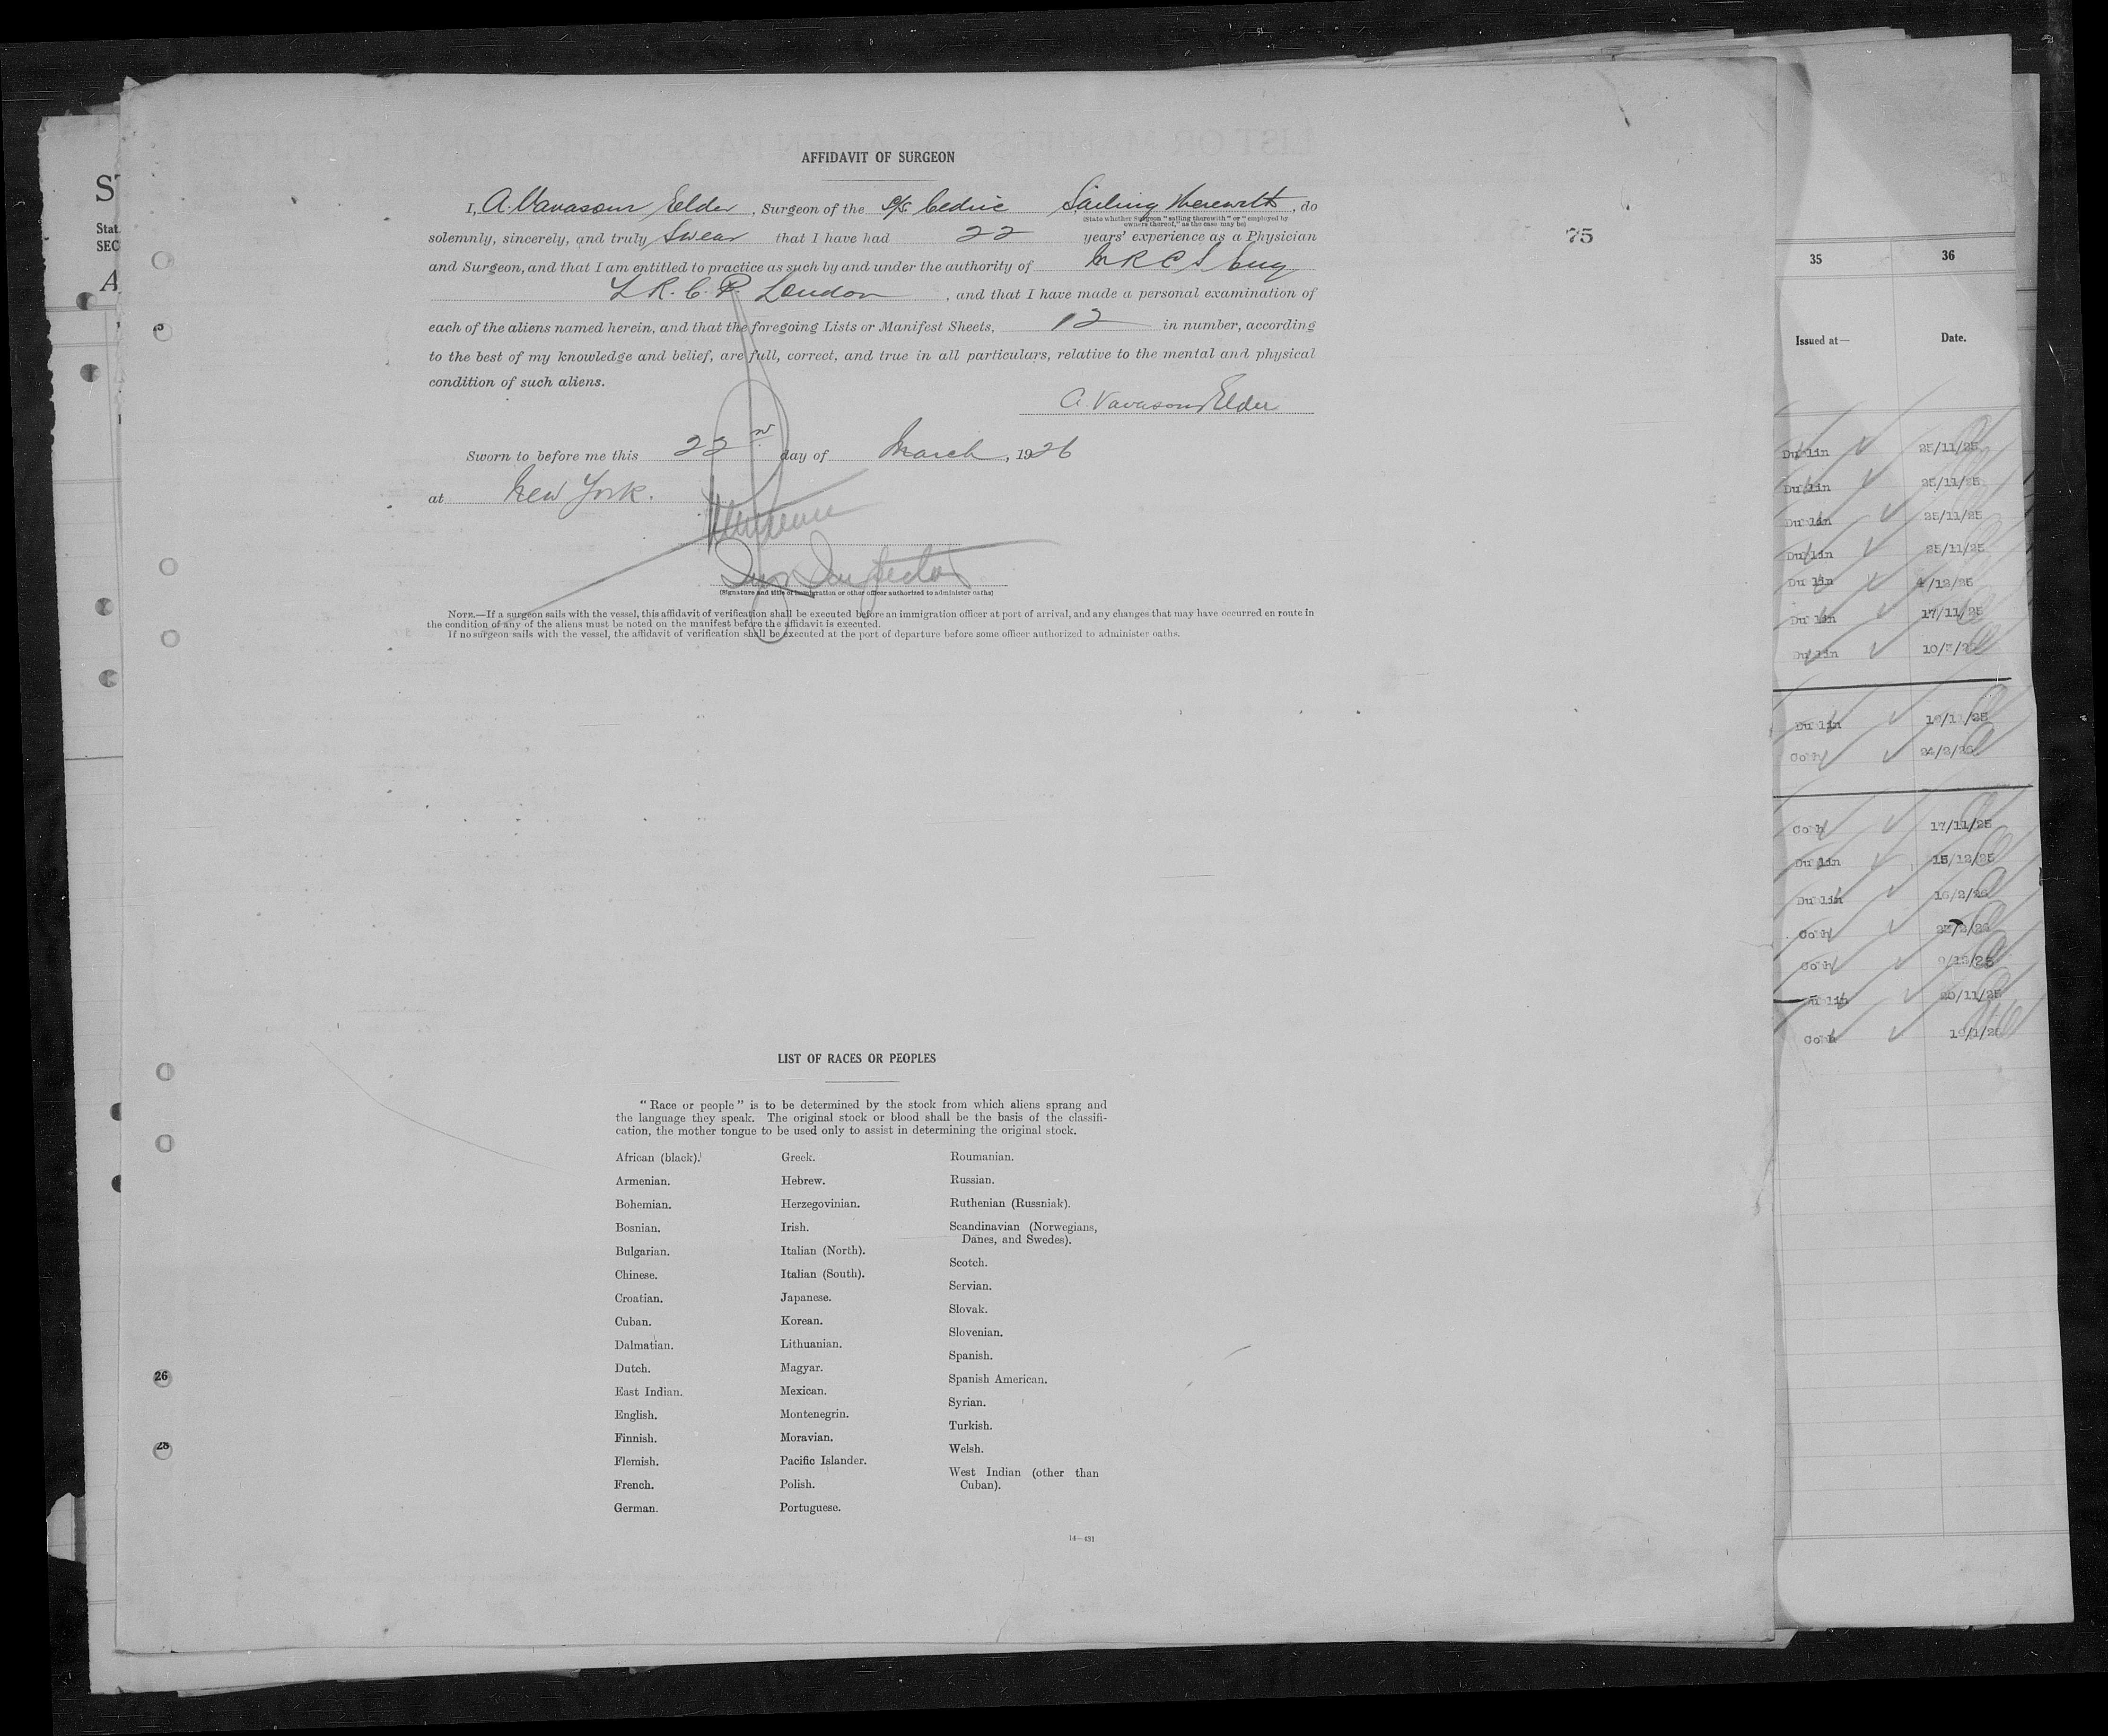 AFFIDAVIT OF SURGEON
I, A. Vavasour Elder, Surgeon of the S/S Cedric Sailing therewith, do
(State whether Surgeon "sailing therewith" or "employed by
owners thereof," as the case may be)
solemnly, sincerely, and truly Swear that I have had 22 years' experience as a Physician
and Surgeon, and that I am entitled to practice as such by and under the authority of M R C S Eng
L R. C. P. London, and that I have made a personal examination of
each of the aliens named herein, and that the foregoing Lists or Manifest Sheets, 12 in number, according
to the best of my knowledge and belief, are full, correct, and true in all particulars, relative to the mental and physical
condition of such aliens.
A. Vavasour Elder
Sworn to before me this 22nd day of March, 1926
at New York.
(Signature and title of immigration or other officer authorized to administer oaths)
NOTE.—If a surgeon sails with the vessel, this affidavit of verification shall be executed before an immigration officer at port of arrival, and any changes that may have occurred en route in
the condition of any of the aliens must be noted on the manifest before the affidavit is executed.
If no surgeon sails with the vessel, the affidavit of verification shall be executed at the port of departure before some officer authorized to administer oaths.
75
LIST OF RACES OR PEOPLES
"Race or people" is to be determined by the stock from which aliens sprang and
the language they speak. The original stock or blood shall be the basis of the classifi-
cation, the mother tongue to be used only to assist in determining the original stock.
African (black).
Armenian.
Bohemian.
Bosnian.
Bulgarian.
Chinese.
Croatian.
Cuban.
Dalmatian.
Dutch.
East Indian.
English.
Finnish.
Flemish.
French.
German.
Greek.
Hebrew.
Herzegovinian.
Irish.
Italian (North).
Italian (South).
Japanese.
Korean.
Lithuanian.
Magyar.
Mexican.
Montenegrin.
Moravian.
Pacific Islander.
Polish.
Portuguese.
Roumanian.
Russian.
Ruthenian (Russniak).
Scandinavian (Norwegians,
Danes, and Swedes).
Scotch.
Servian.
Slovak.
Slovenian.
Spanish.
Spanish American.
Syrian.
Turkish.
Welsh.
West Indian (other than
Cuban).
14—431
26
28
Stat
SEC
35 36
Issued at— Date.
Dublin 25/11/25
Dublin 25/11/25
Dublin 25/11/25
Dublin 25/11/25
Dublin 4/12/25
Dublin 17/11/25
Dublin
Dublin
Cobh 24/2/26
Cobh 17/11/25
Dublin 15/12/25
Dublin 16/2/26
Cobh
Cobh 9/12/25
Dublin 20/11/25
Cobh